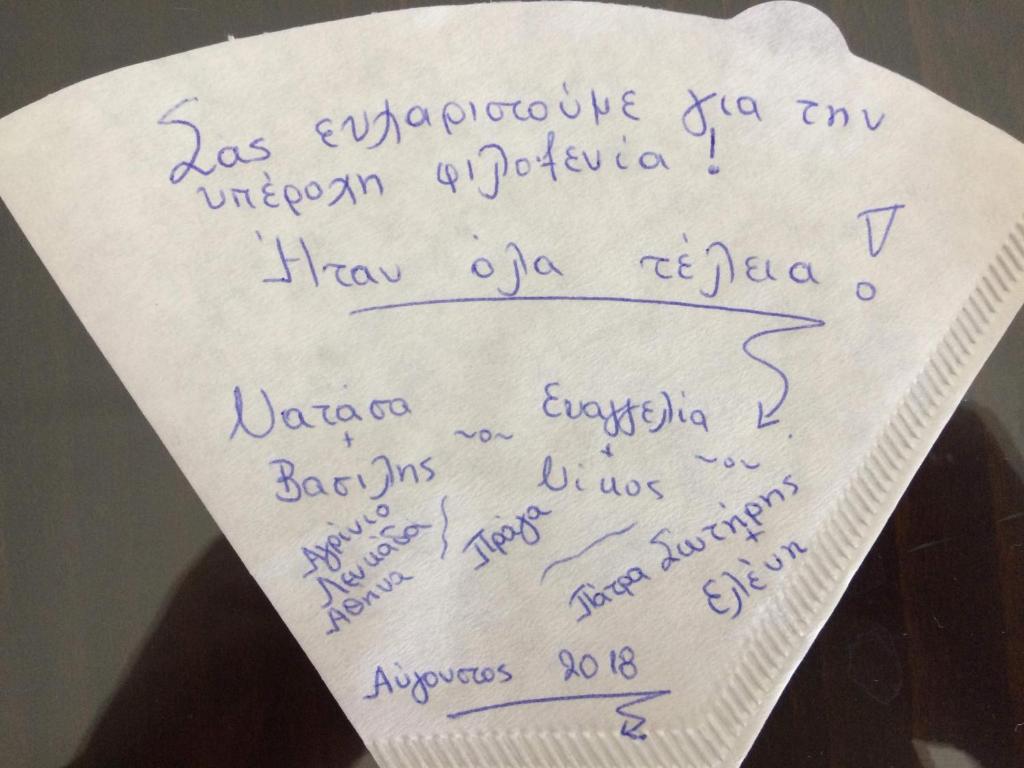 Σας ευχαριστούμε για την
υπέροχη φιλοξενία!
Ήταν όλα τέλεια!
Νατάσα ~o~ Ευαγγελία
+ +
Βασιλης Νίκος ~o~
Αγρίνιο
Λευκάδα
Αθηνα } Πράγα
Πάτρα Σωτήρης
+
Ελένη
Αύγουστος 2018